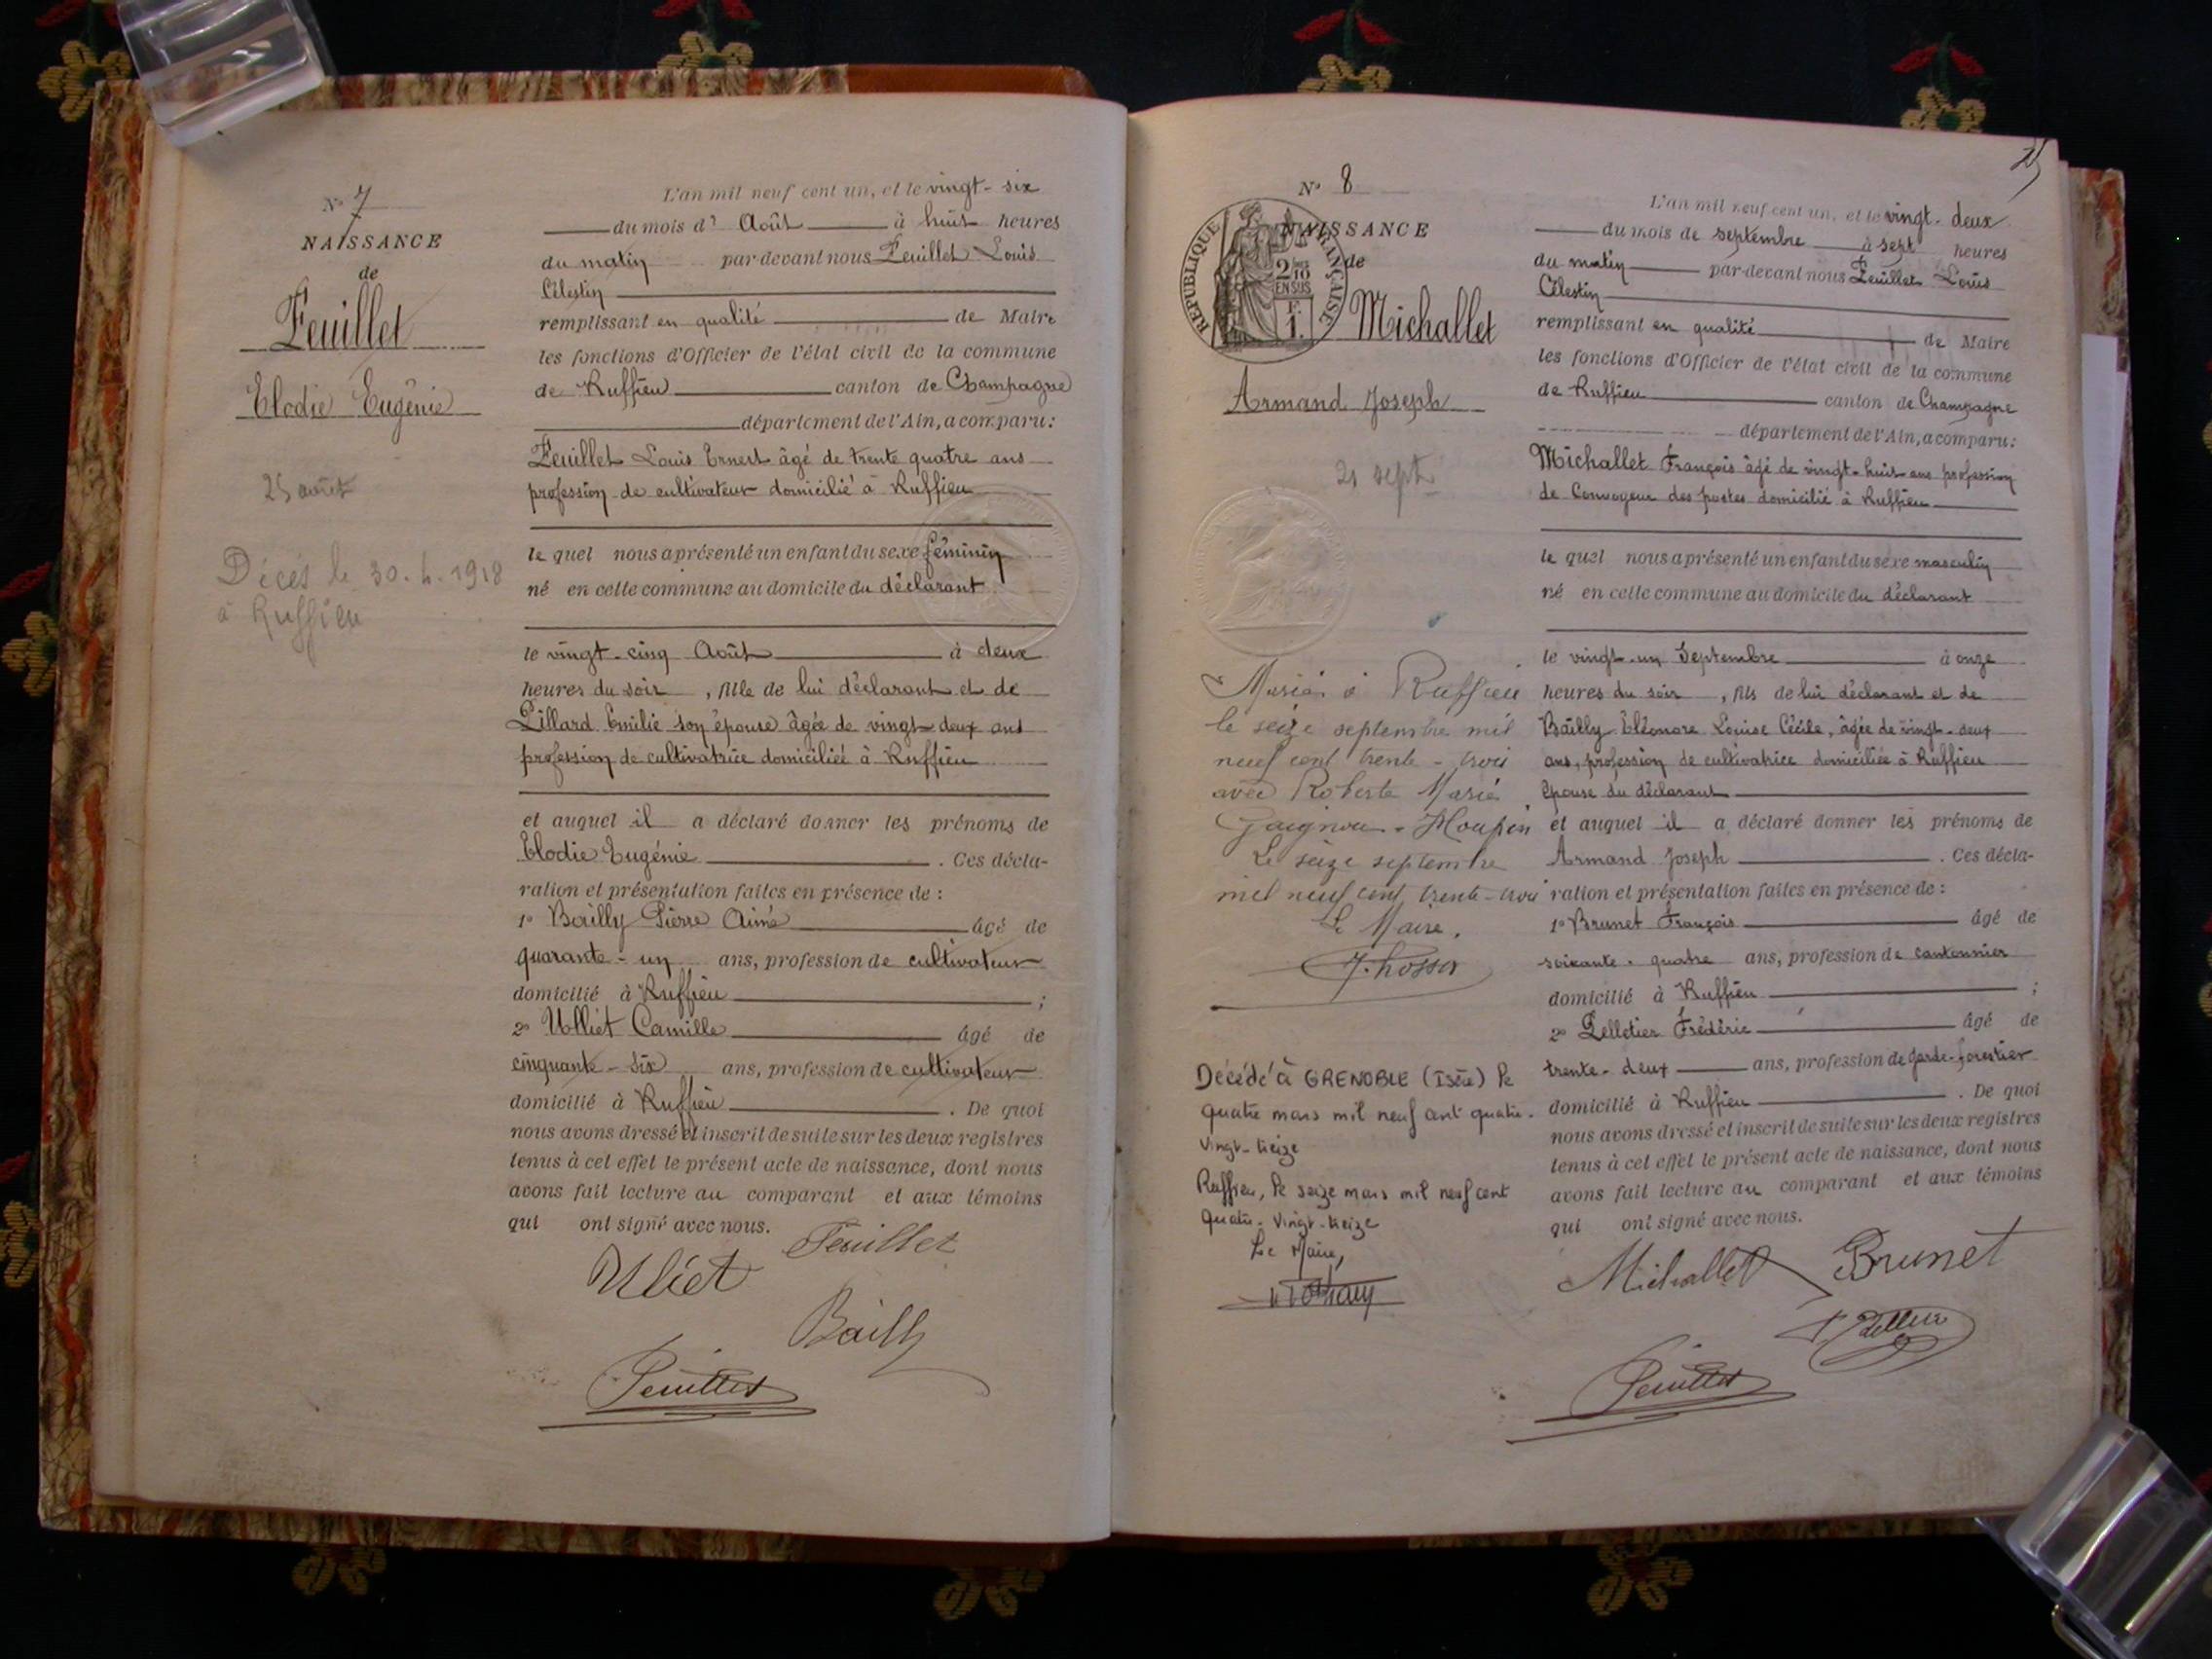 N° 7
NAISSANCE
de
Feuillet
Elodie Eugénie
25 août
Décès le 30.4.1918
à Ruffieu
L'an mil neuf cent un, et le vingt-six
du mois d' Août à huit heures
du matin par-devant nous Feuillet Louis
Célestin
remplissant en qualité de Maire
les fonctions d'Officier de l'état civil de la commune
de Ruffieu canton de Champagne
département de l'Ain, a comparu:
Feuillet Louis Ernest âgé de trente quatre ans
profession de cultivateur domicilié à Ruffieu
le quel nous a présenté un enfant du sexe féminin
né en cette commune au domicile du déclarant
le vingt-cinq Août à deux
heures du soir, fille de lui déclarant et de
Pillard Emilie son épouse âgée de vingt-deux ans
profession de cultivatrice domiciliée à Ruffieu
et auquel il a déclaré donner les prénoms de
Elodie Eugénie. Ces décla-
ration et présentation faites en présence de :
1° Bailly Pierre Aimé âgé de
quarante-un ans, profession de cultivateur
domicilié à Ruffieu ;
2° Ulliet Camille âgé de
cinquante-six ans, profession de cultivateur
domicilié à Ruffieu. De quoi
nous avons dressé et inscrit de suite sur les deux registres
tenus à cet effet le présent acte de naissance, dont nous
avons fait lecture au comparant et aux témoins
qui ont signé avec nous.
Feuillet
Ulliet
Bailly
Feuillet
N° 8
NAISSANCE
de
RÉPUBLIQUE FRANÇAISE
2/10
EN SUS
F.
1.
Michallet
Armand Joseph
21 sept
Marié à Ruffieu
le seize septembre mil
neuf cent trente-trois
avec Roberte Marie
Le seize septembre
mil neuf cent trente-trois
Le Maire,
Décédé à GRENOBLE (Isère) le
quatre mars mil neuf cent quatre-
vingt-treize
Ruffieu, le seize mars mil neuf cent
quatre-vingt-treize
Le Maire,
L'an mil neuf cent un, et le vingt-deux
du mois de septembre à sept heures
du matin par-devant nous Feuillet Louis
Célestin
remplissant en qualité de Maire
les fonctions d'Officier de l'état civil de la commune
de Ruffieu canton de Champagne
département de l'Ain, a comparu:
Michallet François âgé de vingt-huit ans profession
de Convoyeur des postes domicilié à Ruffieu
le quel nous a présenté un enfant du sexe masculin
né en cette commune au domicile du déclarant
le vingt-un Septembre à onze
heures du soir, fils de lui déclarant et de
Bailly Eléonore Louise Cécile, âgée de vingt-deux
ans, profession de cultivatrice domiciliée à Ruffieu
épouse du déclarant
et auquel il a déclaré donner les prénoms de
Armand Joseph. Ces décla-
ration et présentation faites en présence de :
1° Brunet François âgé de
soixante-quatre ans, profession de cantonnier
domicilié à Ruffieu ;
2° Pelletier Frédéric âgé de
trente-deux ans, profession de garde-forestier
domicilié à Ruffieu. De quoi
nous avons dressé et inscrit de suite sur les deux registres
tenus à cet effet le présent acte de naissance, dont nous
avons fait lecture au comparant et aux témoins
qui ont signé avec nous.
Michallet Brunet
Feuillet